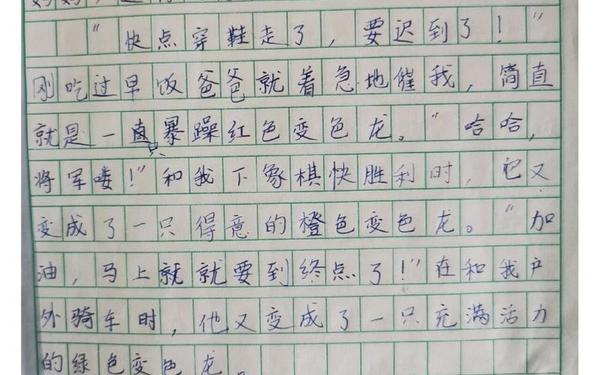 “快点穿鞋走了，要迟到了！”
刚吃过早饭爸爸就着急地催我，简直
就是一直只暴躁红色变色龙。“哈哈，
将军喽！”和我下象棋快胜利时，它又
变成了一只得意的橙色变色龙。“加
油，马上就就要到终点了！”在和我户
外骑车时，他又变成了一只充满活力
的绿色变色龙。